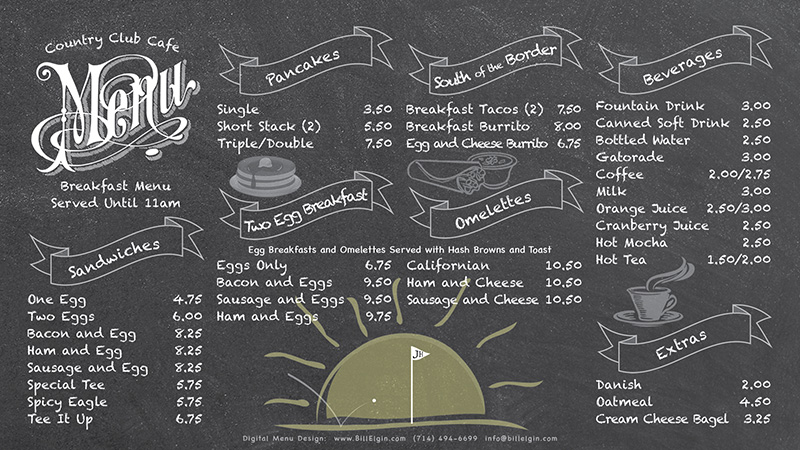 Country Club Cafe
Menu
Breakfast Menu
Served Until 11am
Sandwiches
One Egg 4.75
Two Eggs 6.00
Bacon and Egg 8.25
Ham and Egg 8.25
Sausage and Egg 8.25
Special Tee 5.75
Spicy Eagle 5.75
Tee It Up 6.75
Pancakes
Single 3.50
Short Stack (2) 5.50
Triple/Double 7.50
South of the Border
Breakfast Tacos (2) 7.50
Breakfast Burrito 8.00
Egg and Cheese Burrito 6.75
Two Egg Breakfast
Omelettes
Egg Breakfasts and Omelettes Served with Hash Browns and Toast
Eggs Only 6.75
Bacon and Eggs 9.50
Sausage and Eggs 9.50
Ham and Eggs 9.75
Californian 10.50
Ham and Cheese 10.50
Sausage and Cheese 10.50
Beverages
Fountain Drink 3.00
Canned Soft Drink 2.50
Bottled Water 2.50
Gatorade 3.00
Coffee 2.00/2.75
Milk 3.00
Orange Juice 2.50/3.00
Cranberry Juice 2.50
Hot Mocha 2.50
Hot Tea 1.50/2.00
Extras
Danish 2.00
Oatmeal 4.50
Cream Cheese Bagel 3.25
Digital Menu Design: www.BillElgin.com (714) 494-6699 info@billelgin.com